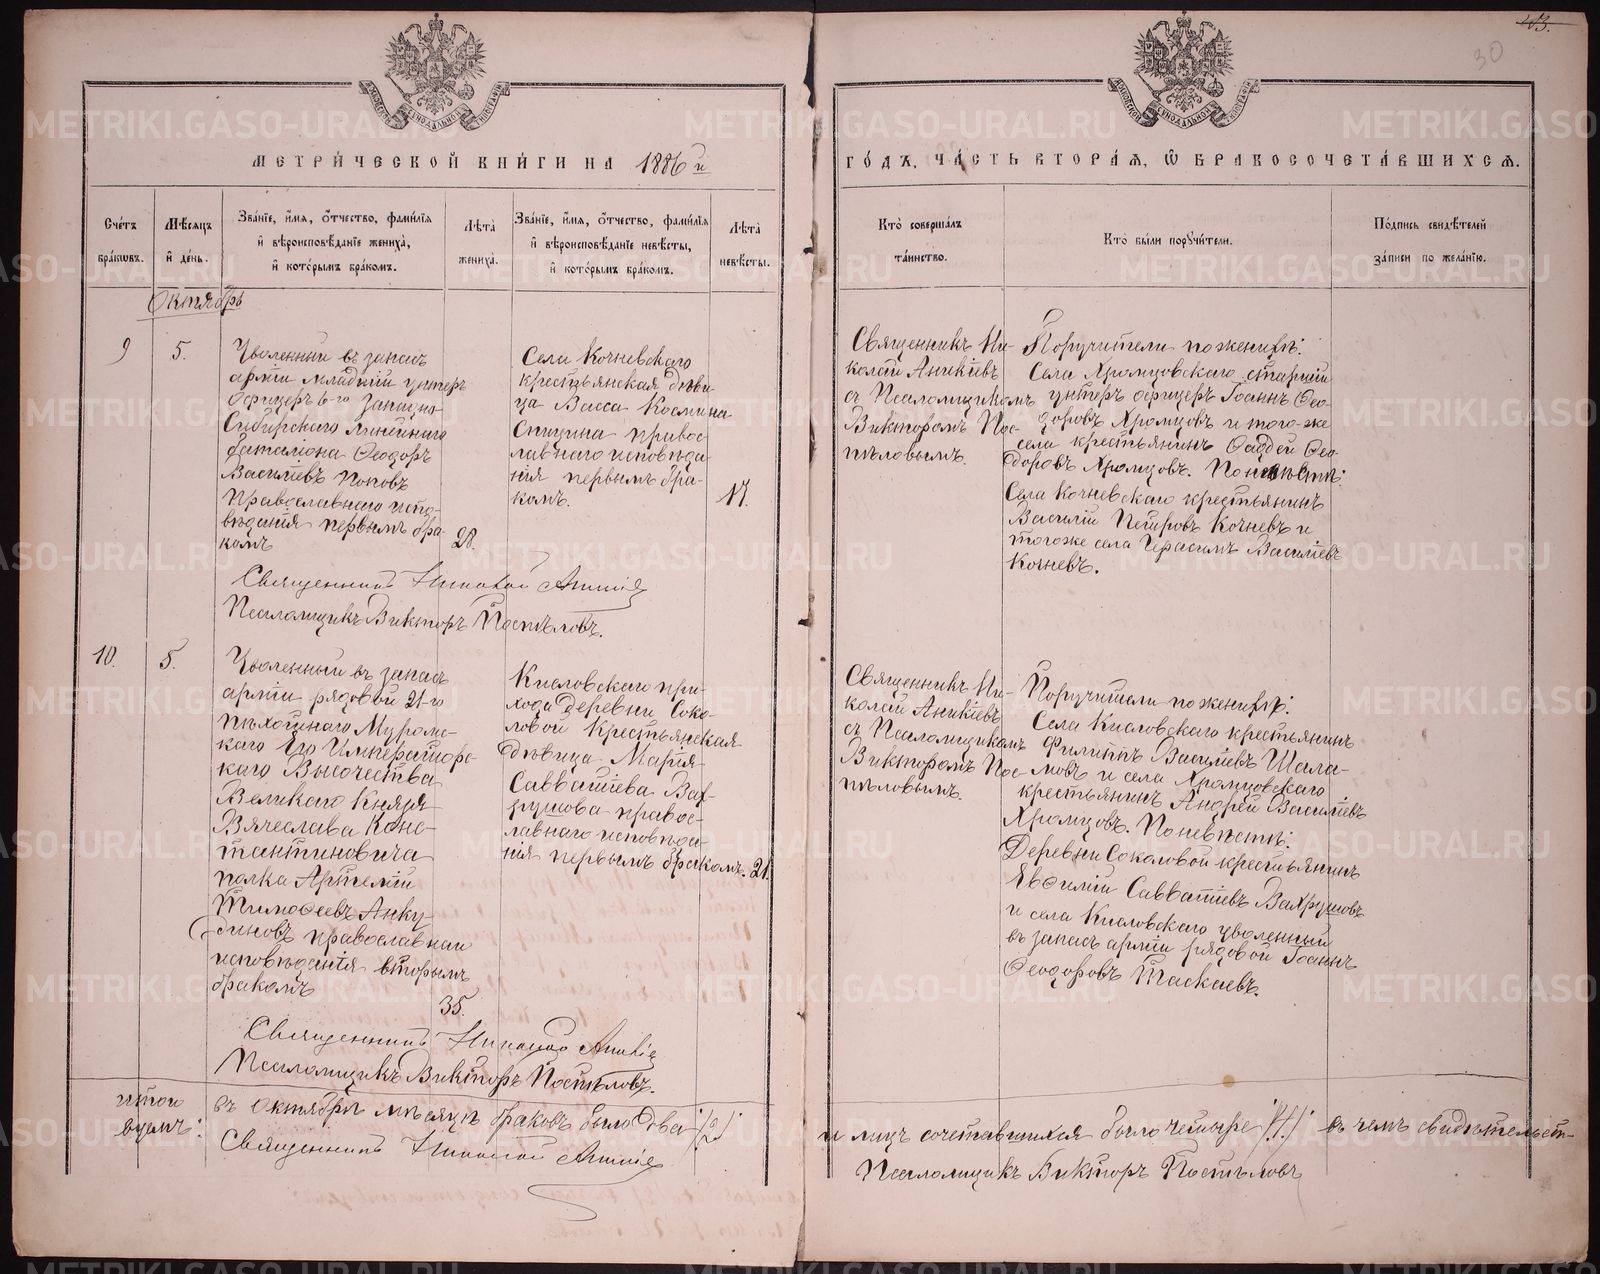 МЕТРИ́ЧЕСКОЙ КНИ́ГИ НА 1886й
ГО́ДЪ, ЧА́СТЬ ВТОРА́Я, Ѡ БРАКОСОЧЕТА́ВШИХСЯ.
30
Сче́тъ бра́кѡвъ.
Мѣ́сяцъ и҆ де́нь.
Зва́нїе, и҆́мя, ѻ҆́тчество, фами́лїя
и҆ вѣроисповѣ́данїе жениха̀,
и҆ кото́рымъ бра́комъ.
Лѣ́та жениха̀.
Зва́нїе, и҆́мя, ѻ҆́тчество, фами́лїя
и҆ вѣроисповѣ́данїе невѣ́сты,
и҆ кото́рымъ бра́комъ.
Лѣ́та невѣ́сты.
Кто̀ соверша́лъ
та́инство.
Кто̀ бы́ли порꙋчи́тели.
По́дпись свидѣ́телей
за́писи по жела́нїю.
Октябрь
9
5.
Уволенный въ запасъ
арміи младшій унтеръ
офицеръ 6-го Западно-
Сибирскаго Линейнаго
баталіона Ѳеодоръ
Василіевъ Поповъ
Православнаго испо-
вѣданія первымъ бра-
комъ
28.
Села Кочневскаго
крестьянская дѣви-
ца Васса Космина
Спицина правос-
лавнаго исповѣда-
нія первымъ бра-
комъ.
17.
Священникъ Ни-
колай Аникіевъ
съ Псаломщикомъ
Викторомъ Пос-
тѣловымъ.
Поручители по женихѣ:
Села Хромцовскаго старшій
унтеръ офицеръ Іоаннъ Ѳео-
доровъ Хромцовъ и того-же
села крестьянинъ Ѳаддей Ѳео-
доровъ Хромцовъ. По невѣстѣ:
Села Кочневскаго крестьянинъ
Василій Петровъ Кочневъ и
тогоже села Герасимъ Василіевъ
Кочневъ.
Священникъ Николай Аникіев
Псаломщикъ Викторъ Постѣловъ.
10.
5.
Уволенный въ запасъ
арміи рядовой 21-го
пѣхотнаго Муромс-
каго Его Императорс-
каго Высочества
Великаго Князя
Вячеслава Конс-
тантиновича
полка Артемій
Тимоѳеевъ Анку-
диновъ православнаго
исповѣданія вторымъ
бракомъ
35.
Кисловскаго при-
хода Деревни Соко-
ловой Крестьянская
дѣвица Марія
Савватіева Вах-
рушова правос-
лавнаго исповѣда-
нія первымъ бракомъ.
21.
Священникъ Ни-
колай Аникіевъ
съ Псаломщикомъ
Викторомъ Пос-
тѣловымъ.
Поручители по женихѣ:
Села Кисловскаго крестьянинъ
Филиппъ Василіевъ Шала-
мовъ и села Хромцовскаго
крестьянинъ Андрей Василіевъ
Хромцовъ. По невѣстѣ:
Деревни Соколовой крестьянинъ
Евѳимій Савватіевъ Вахрушовъ
и села Кисловскаго уволенный
въ запасъ арміи рядовой Іоаннъ
Ѳеодоровъ Таскаевъ.
Священникъ Николай Аникіев
Псаломщикъ Викторъ Постѣловъ.
итого
въ октябрѣ мѣсяцѣ браковъ было два /2/
и лицъ сочетавшихся было четыре /4/ въ чемъ свидѣтельст-
вуемъ:
Священникъ Николай Аникіев
Псаломщикъ Викторъ Постѣловъ
METRIKI.GASO-URAL.RU